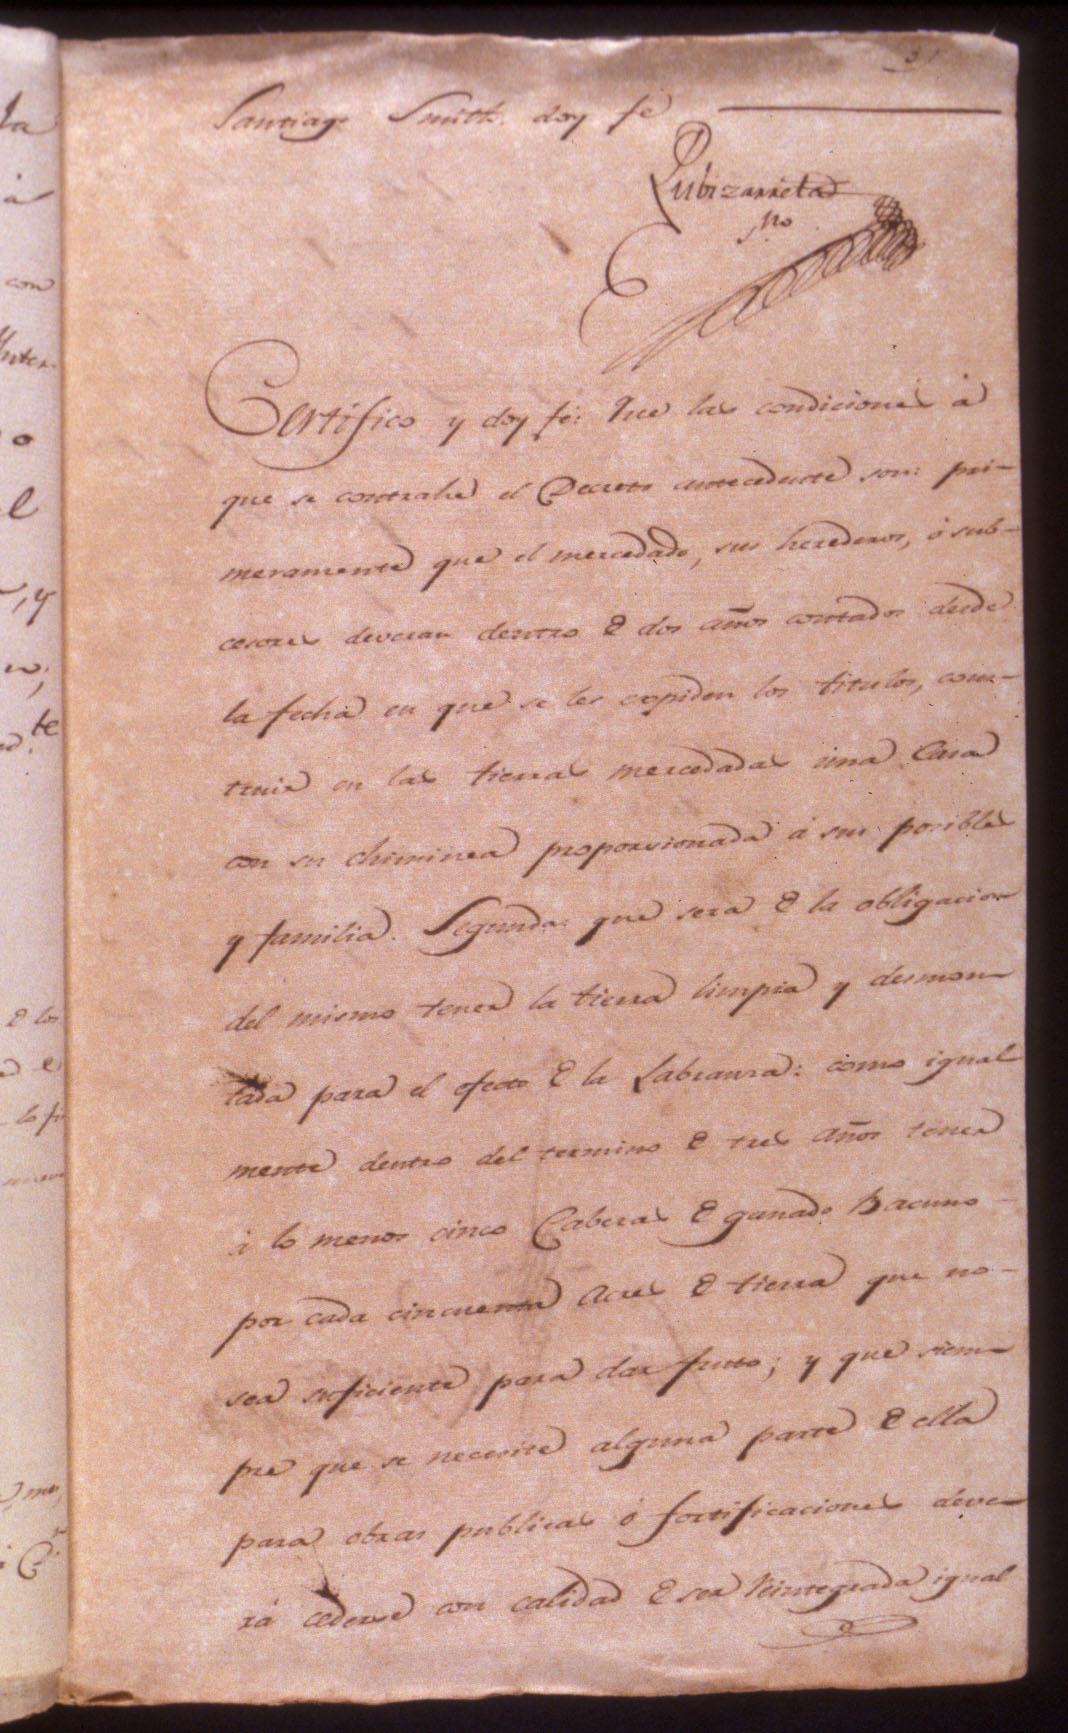 31
Santiago Smith. doy fe
Zubizarreta
Certifico y doy fé: Que las condiciones á
que se contrahe el Decreto antecedente son: pri-
meramente que el mercedado, sus herederos, ó sub-
cesores deveran dentro de dos años contados desde
la fecha en que se les expiden los titulos, cons-
truir en las tierras mercedadas una Casa
con su chiminea proporsionada á sus posibles
y familia. Segunda: que sera de la obligacion
del mismo tener la tierra limpia y desmon-
tada para el efecto de la Labranza: como igual
mente dentro del termino de tres años tener
á lo menos cinco Cabezas de ganado Bacuno
por cada cincuenta Acres de tierra que no-
sea suficiente para dar fruto; y que siem-
pre que se necesite alguna parte de ella
para obras publicas ó fortificaciones deve-
rá cederse con calidad de ser Reintegrada igual